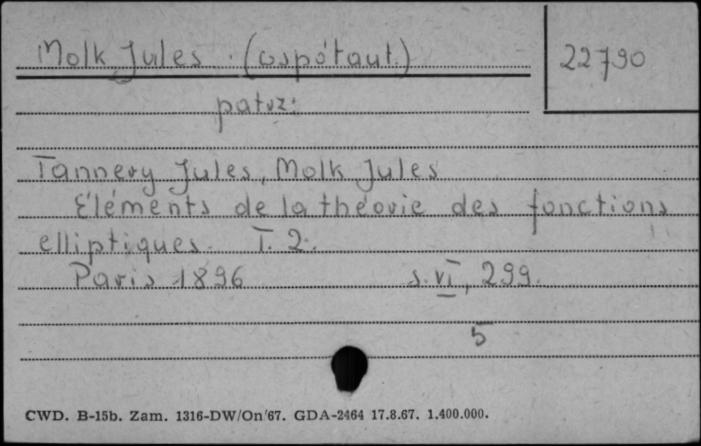 Molk Jules. (współaut.)
22790
patrz:
Tannery Jules, Molk Jules
Eléments de la théorie des fonctions
elliptiques. T. 2.
Paris 1896 s. VI, 299.
5
CWD. B-15b. Zam. 1316-DW/On/67. GDA-2464 17.8.67. 1.400.000.